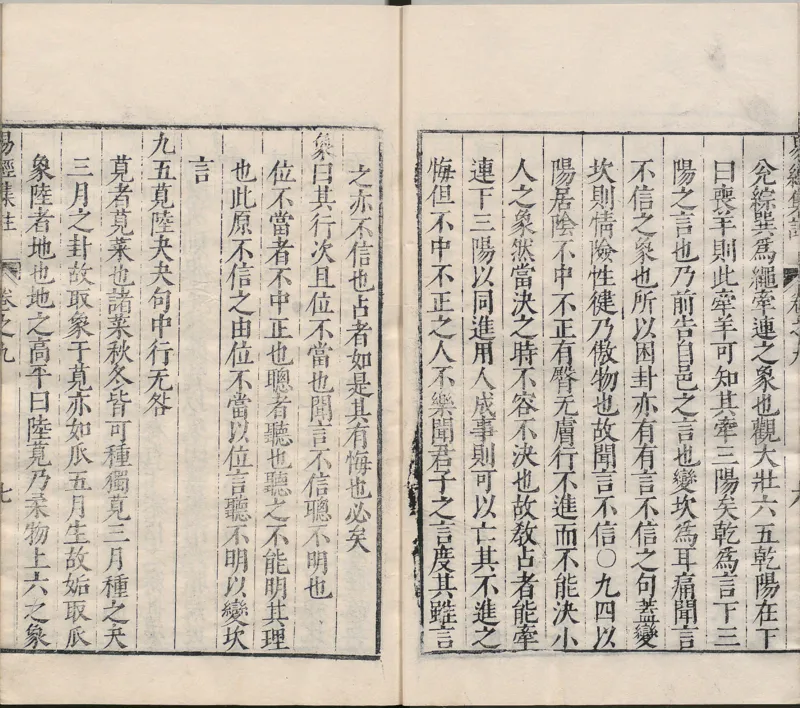 兊綜巽爲繩牽連之象也觀大壯六五乾陽在下
曰喪羊則此牽羊可知其牽三陽矣乾爲言下三
陽之言也乃前告自邑之言也變坎爲耳痛聞言
不信之象也所以困卦亦有有言不信之句蓋變
坎則情險性健乃傲物也故聞言不信〇九四以
陽居陰不中不正有臀无膚行不進而不能決小
人之象然當決之時不容不決也故教占者能牽
連下三陽以同進用人成事則可以亡其不進之
悔但不中不正之人不樂聞君子之言度其雖言
之亦不信也占者如是其有悔也必矣
象曰其行次且位不當也聞言不信聰不明也
位不當者不中正也聰者聽也聽之不能明其理
也此原不信之由位不當以位言聽不明以變坎
言
九五莧陸夬夬句中行无咎
莧者莧菜也諸菜秋冬皆可種獨莧三月種之夬
三月之卦故取象于莧亦如瓜五月生故姤取瓜
象陸者地也地之高平曰陸莧乃柔物上六之象
易經集註
卷之九
七